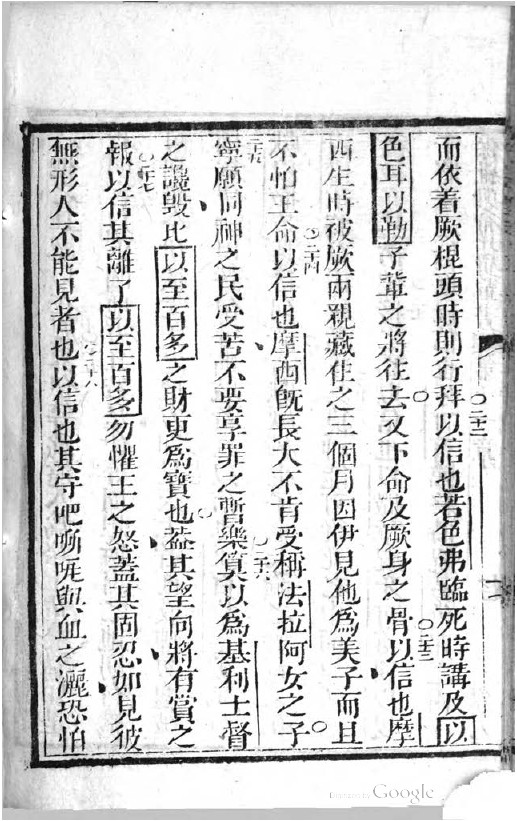 而依着厥棍頭時則行拜○二十二以信也若色弗臨死時講及以
色耳以勒子輩之將往去又下命及厥身之骨○二十三以信也摩
西生時被厥兩親藏住之三個月因伊見他為美子而且
不怕王命○二十四以信也摩西既長大不肯受稱法拉阿女之子
二十五寧願同神之民受苦不要享罪之暫樂○二十六算以為基利士督
之讒毀比以至百多之財更為寶也蓋其望向將有賞之
報○二十七以信其離了以至百多勿懼王之怒蓋其固忍如見彼
無形人不能見者也○二十八以信也其守吧嘶與血之灑恐怕
Digitized by Google